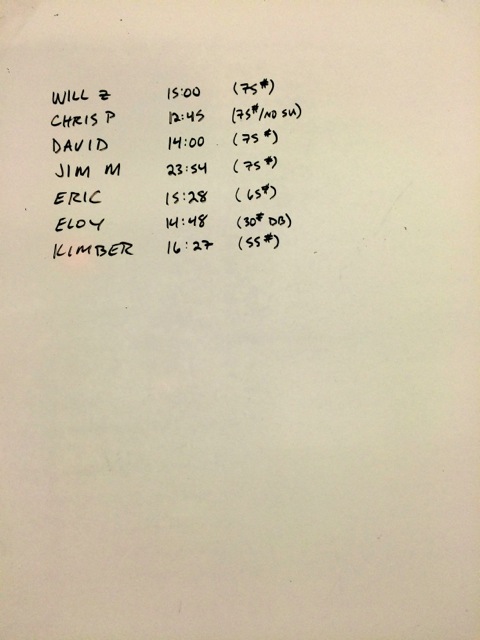 WILL Z 15:00 (75#)
CHRIS P 12:45 (75#/NO SU)
DAVID 14:00 (75#)
JIM M 23:54 (75#)
ERIC 15:28 (65#)
ELOY 14:48 (30# DB)
KIMBER 16:27 (55#)